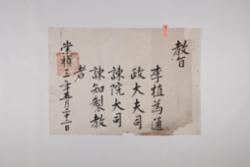 敎旨
李植爲通
政大夫司
諫院大司
諫知製敎
者
崇禎三年五月二十三日